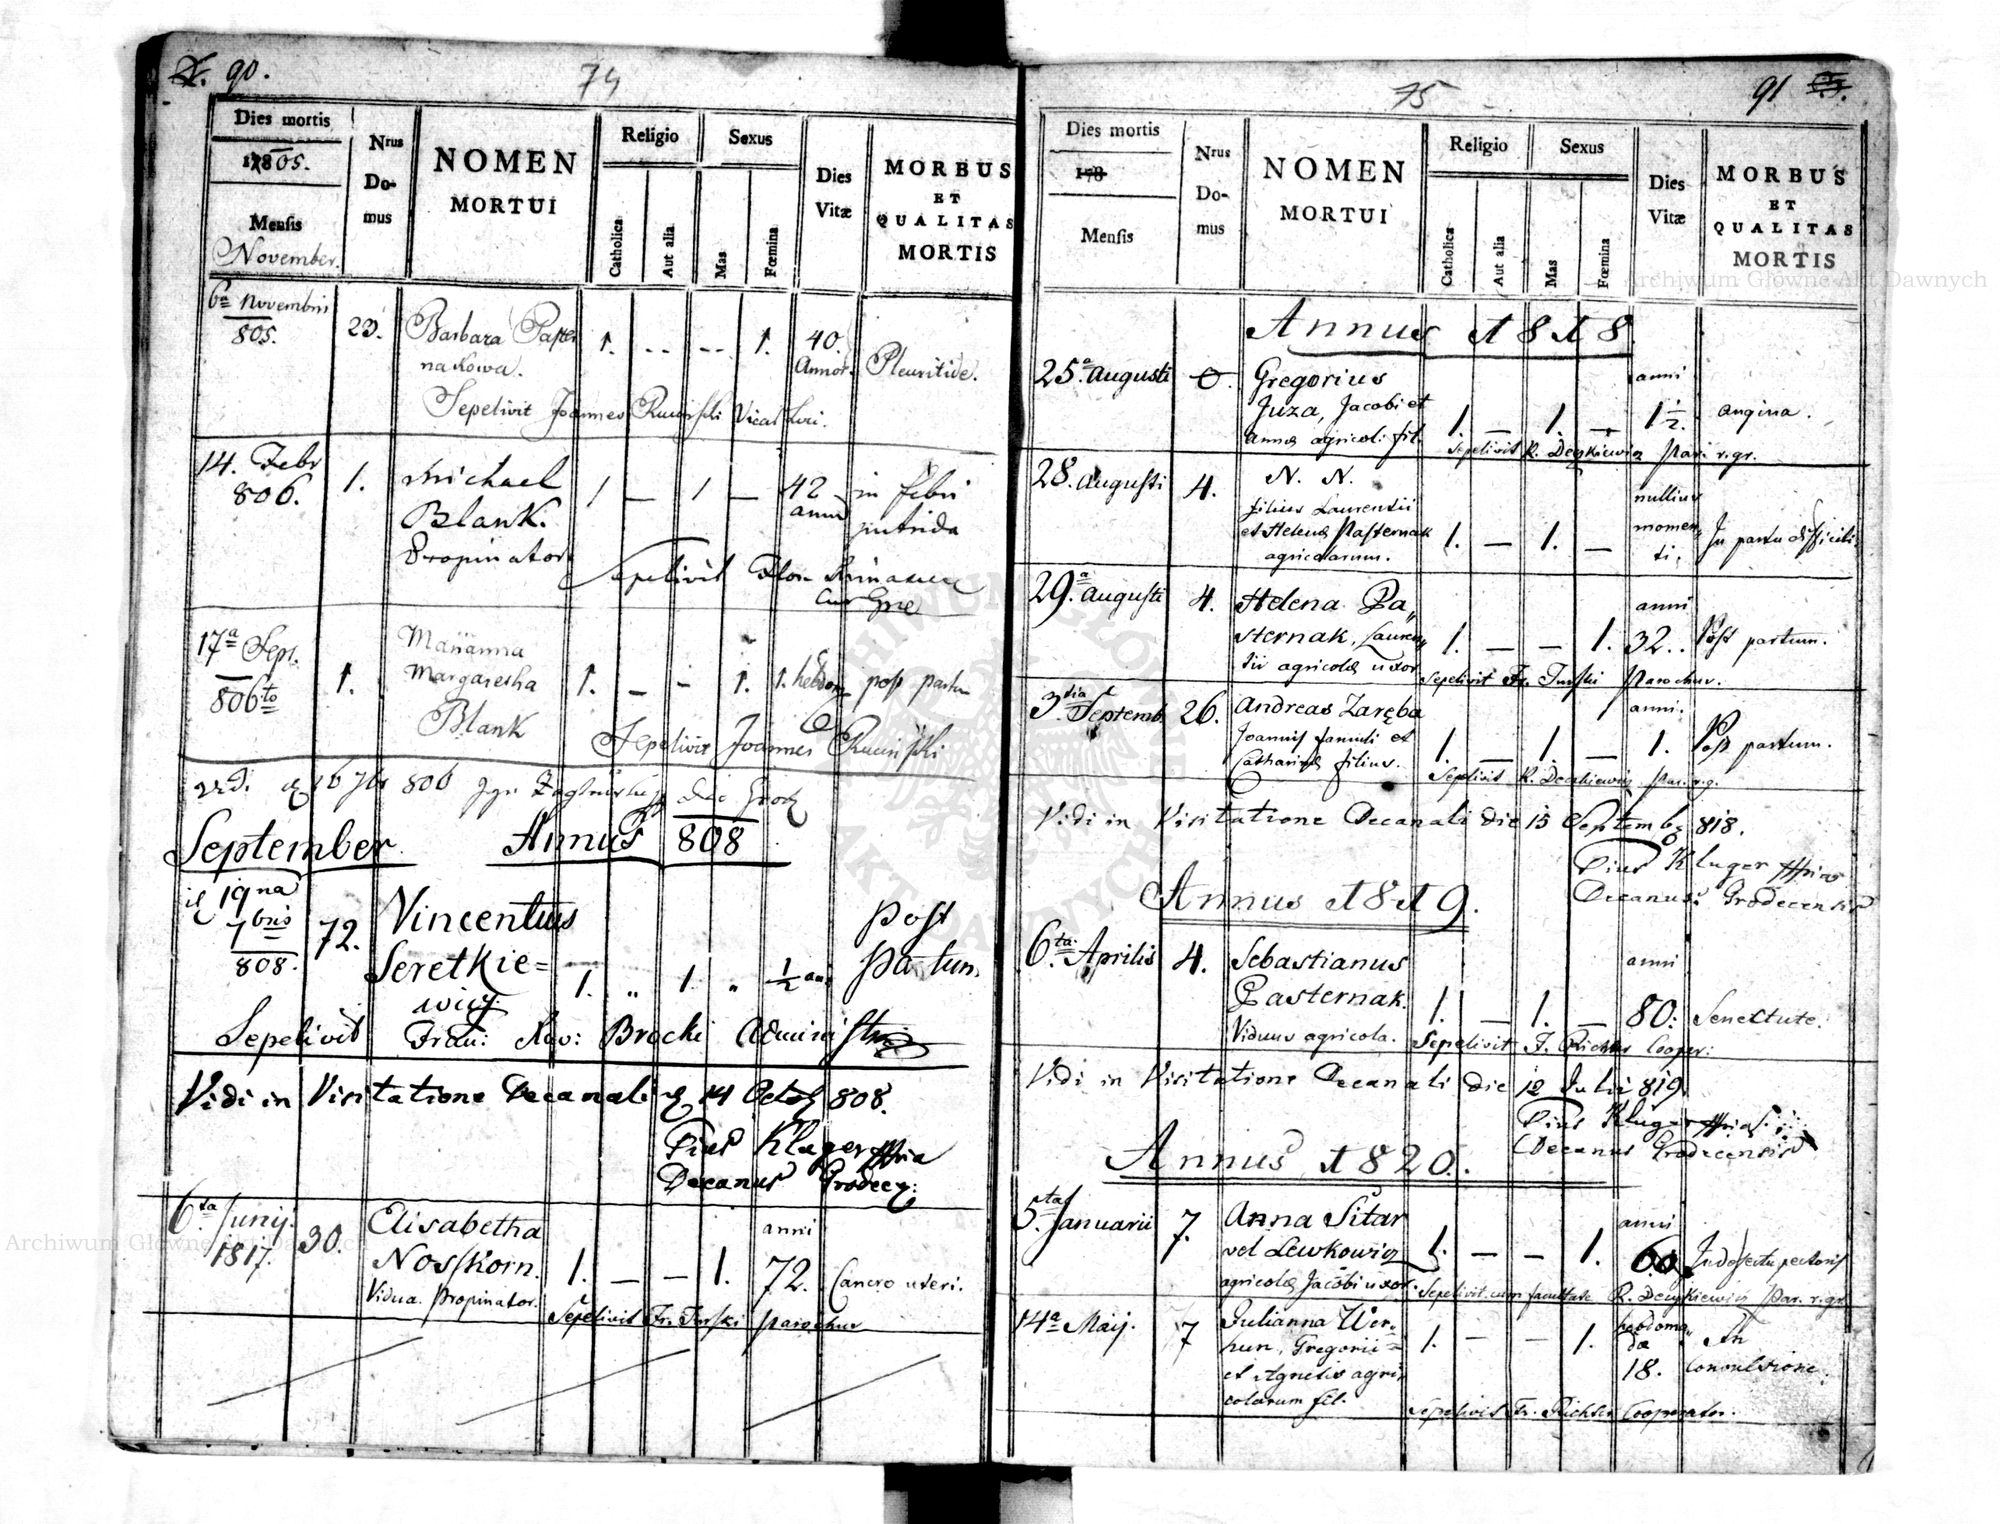 90.
74
Dies mortis
1805.
Mensis
November.
Nrus
Do-
mus
NOMEN
MORTUI
Religio
Catholica
Aut alia
Sexus
Mas
Fœmina
Dies
Vitæ
MORBUS
ET
QUALITAS
MORTIS
6ta Novembris
805.
23.
Barbara Paster
nakowa.
1. -- -- 1.
40.
Annor.
Pleuritide.
Sepelivit Joannes Vica Loci.
14. Febr
806.
1.
Michael
Blank.
Propinator
1 — 1 —
42
anno
in febri
putrida
Sepelivit
17a Sept.
806to
1.
Marianna
Margaretha
Blank
1. - - 1.
1. hebdom
post partu
Sepelivit Joannes
806
September Annus 808
19na
7bris
808.
72.
Vincentius
Seretkie=
wicz
1. „ 1. „
1/2 ani
Post
Partum
Sepelivit Fran: Xav: Brocki Administr
Vidi in Visitatione Decanali 14 808.
Pius Kluger
Decanus Grodec:
6ta Junij.
1817.
30.
Elisabetha
Nosskorn.
Vidua. Propinator.
1. — — 1.
anni
72.
Cancro uteri.
Sepelivit Fr. Turski Parochus
91
75
Dies mortis
178
Mensis
Nrus
Do-
mus
NOMEN
MORTUI
Religio
Catholica
Aut alia
Sexus
Mas
Fœmina
Dies
Vitæ
MORBUS
ET
QUALITAS
MORTIS
Annus 1818.
25.a Augusti
0.
Gregorius
Juza, Jacobi et
Annæ agricol: fil.
1. — 1. —
anni
1 1/2.
angina.
Sepelivit R.
28. Augusti
4.
N. N.
filius Laurentii
et Helenæ Pasternak
agricolarum.
1. — 1. —
nullius
momen„
ti.
In partu difficili.
29.a Augusti
4.
Helena Pa„
sternak, Lauren„
tii agricolæ uxor
1. — — 1.
anni
32.
Post partum.
Sepelivit Fr. Turski Parochus.
3tia Septemb.
26.
Andreas Zaręba
Joannis famuli et
Catharinæ filius.
1. — 1. —
anni.
1.
Post partum.
Sepelivit R.
Vidi in Visitatione Decanali die 15 Septemb 818.
Pius Kluger
Decanus Grodecensis
Annus 1819.
6.ta Aprilis
4.
Sebastianus
Pasternak.
Viduus agricola.
1. — 1. —
anni
80.
Senectute.
Sepelivit F. Richter Cooper:
Vidi in Visitatione Decanali die 12 Julii 819.
Pius Kluger
Decanus Grodecensis
Annus 1820.
5.ta Januarii
7.
Anna Sitar
vel Lewkowicz
agricolæ Jacobi uxor.
1. — — 1.
anni
60
Sepelivit cum facultate R.
14a Maij.
7
Julianna Wer„
hun, Gregorii
et Agnetis agri„
colarum fil.
1. — — 1.
hebdoma„
dæ
18.
In
convulsione.
Sepelivit Fr. Richter Cooperator.
Archiwum Główne Akt Dawnych
Archiwum Główne Akt Dawnych
ARCHIWUM GŁÓWNE AKT DAWNYCH